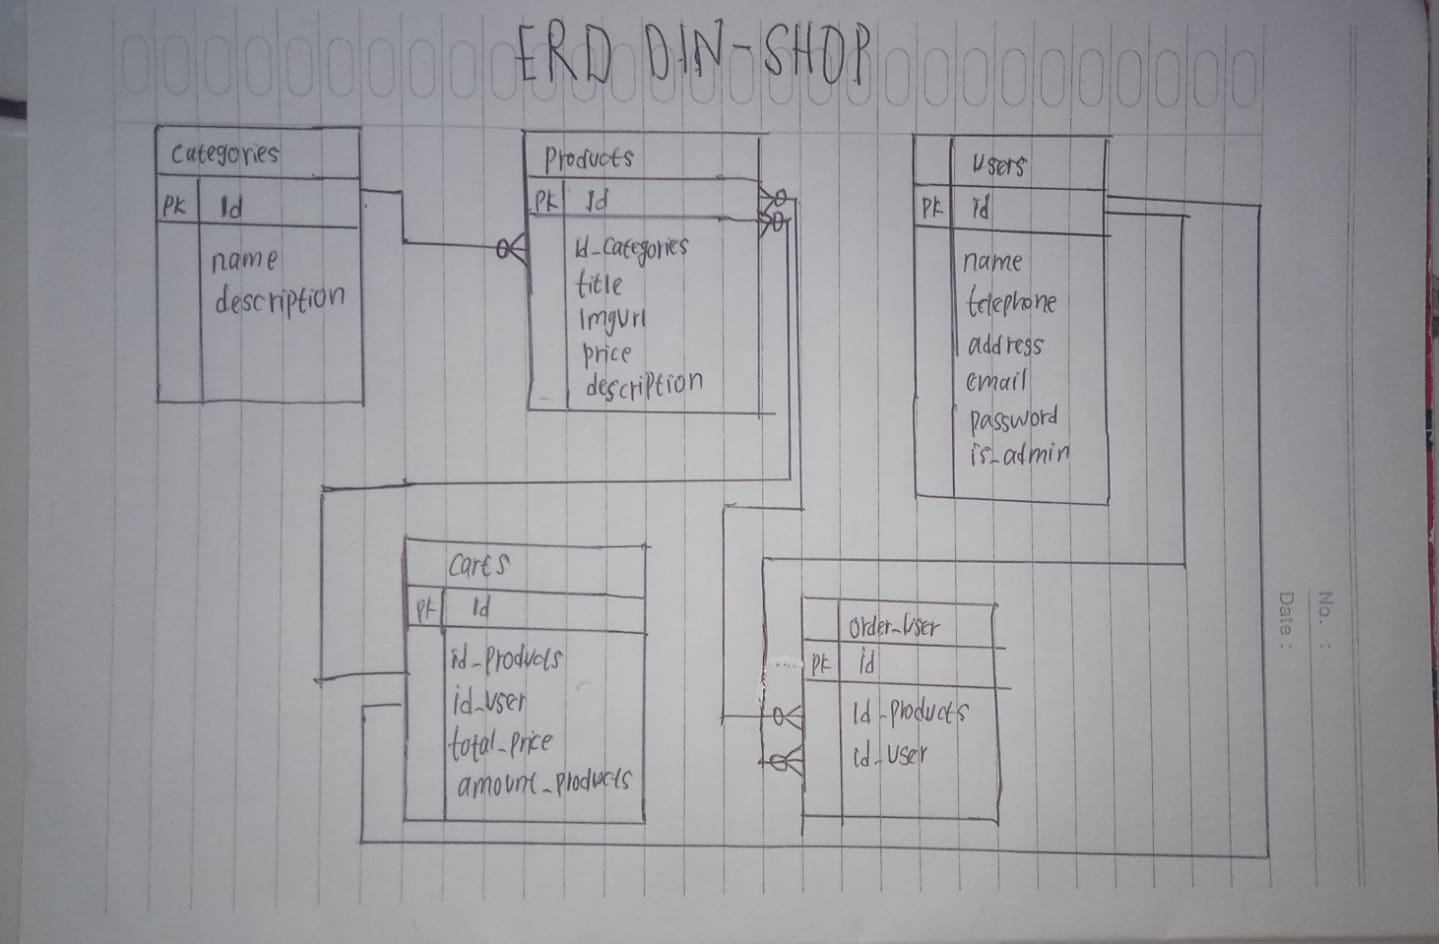 ERD DIN-SHOP
Categories
PK Id
name
description
Products
PK Id
Id_Categories
title
Imgurl
price
description
Users
PK id
name
telephone
address
email
password
is_admin
Carts
PK Id
id_products
id_user
total_price
amount_products
Order_User
PK id
Id_products
id_user
No. :
Date :